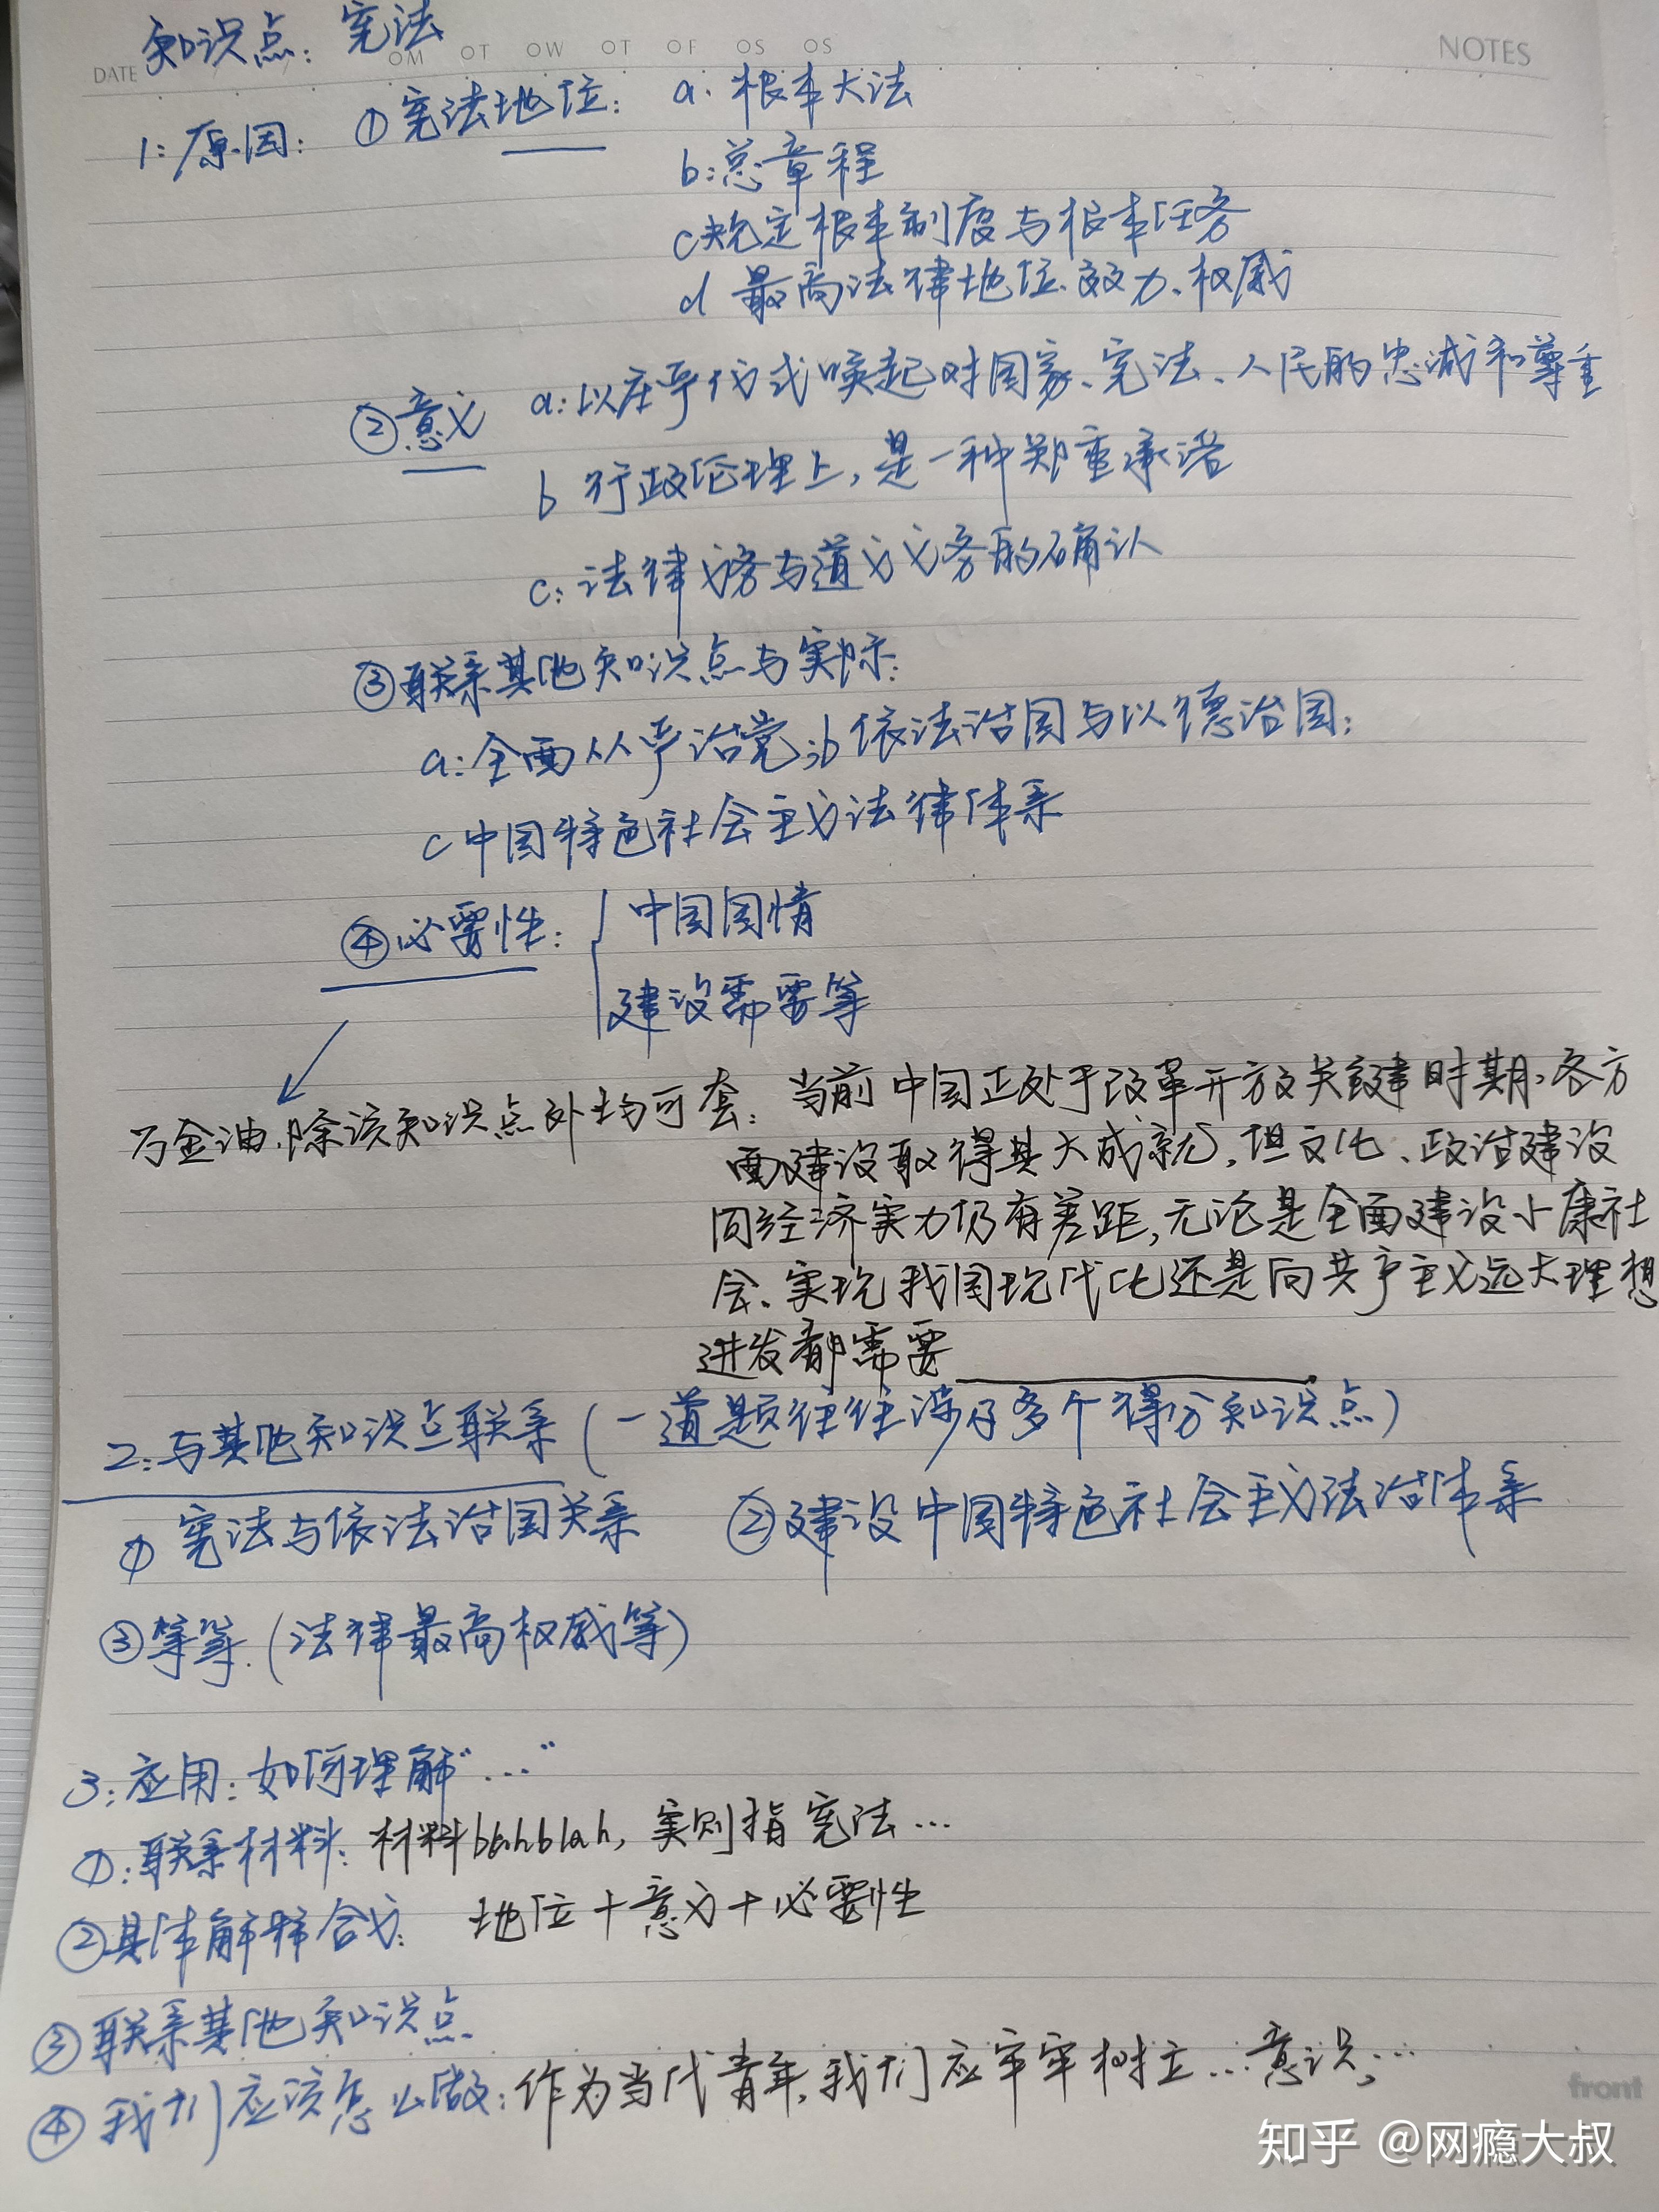 知识点：宪法
DATE OM OT OW OT OF OS OS NOTES
1：原因：①宪法地位：a. 根本大法
b：总章程
c 规定根本制度与根本任务
d 最高法律地位、效力、权威
②意义 a：以庄严仪式唤起对国家、宪法、人民的忠诚和尊重
b 行政伦理上，是一种郑重承诺
c：法律义务与道义义务的确认
③联系其他知识点与实际：
a：全面从严治党；b 依法治国与以德治国；
c 中国特色社会主义法律体系
④必要性：中国国情
建设需要等
万金油，除该知识点外均可套：当前中国正处于改革开放关键时期，各方
面建设取得其大成就，但文化、政治建设
同经济实力仍有差距，无论是全面建设小康社
会、实现我国现代化还是向共产主义远大理想
进发都需要
2：与其他知识点联系（一道题往往涉及多个得分知识点）
① 宪法与依法治国关系 ②建设中国特色社会主义法治体系
③等等.（法律最高权威等）
3：应用：如何理解“...”
①：联系材料：材料blahblah，实则指宪法...
②具体解释含义：地位+意义+必要性
③联系其他知识点
④我们应该怎么做：作为当代青年，我们应牢牢树立...意识；...
front
知乎 @网瘾大叔